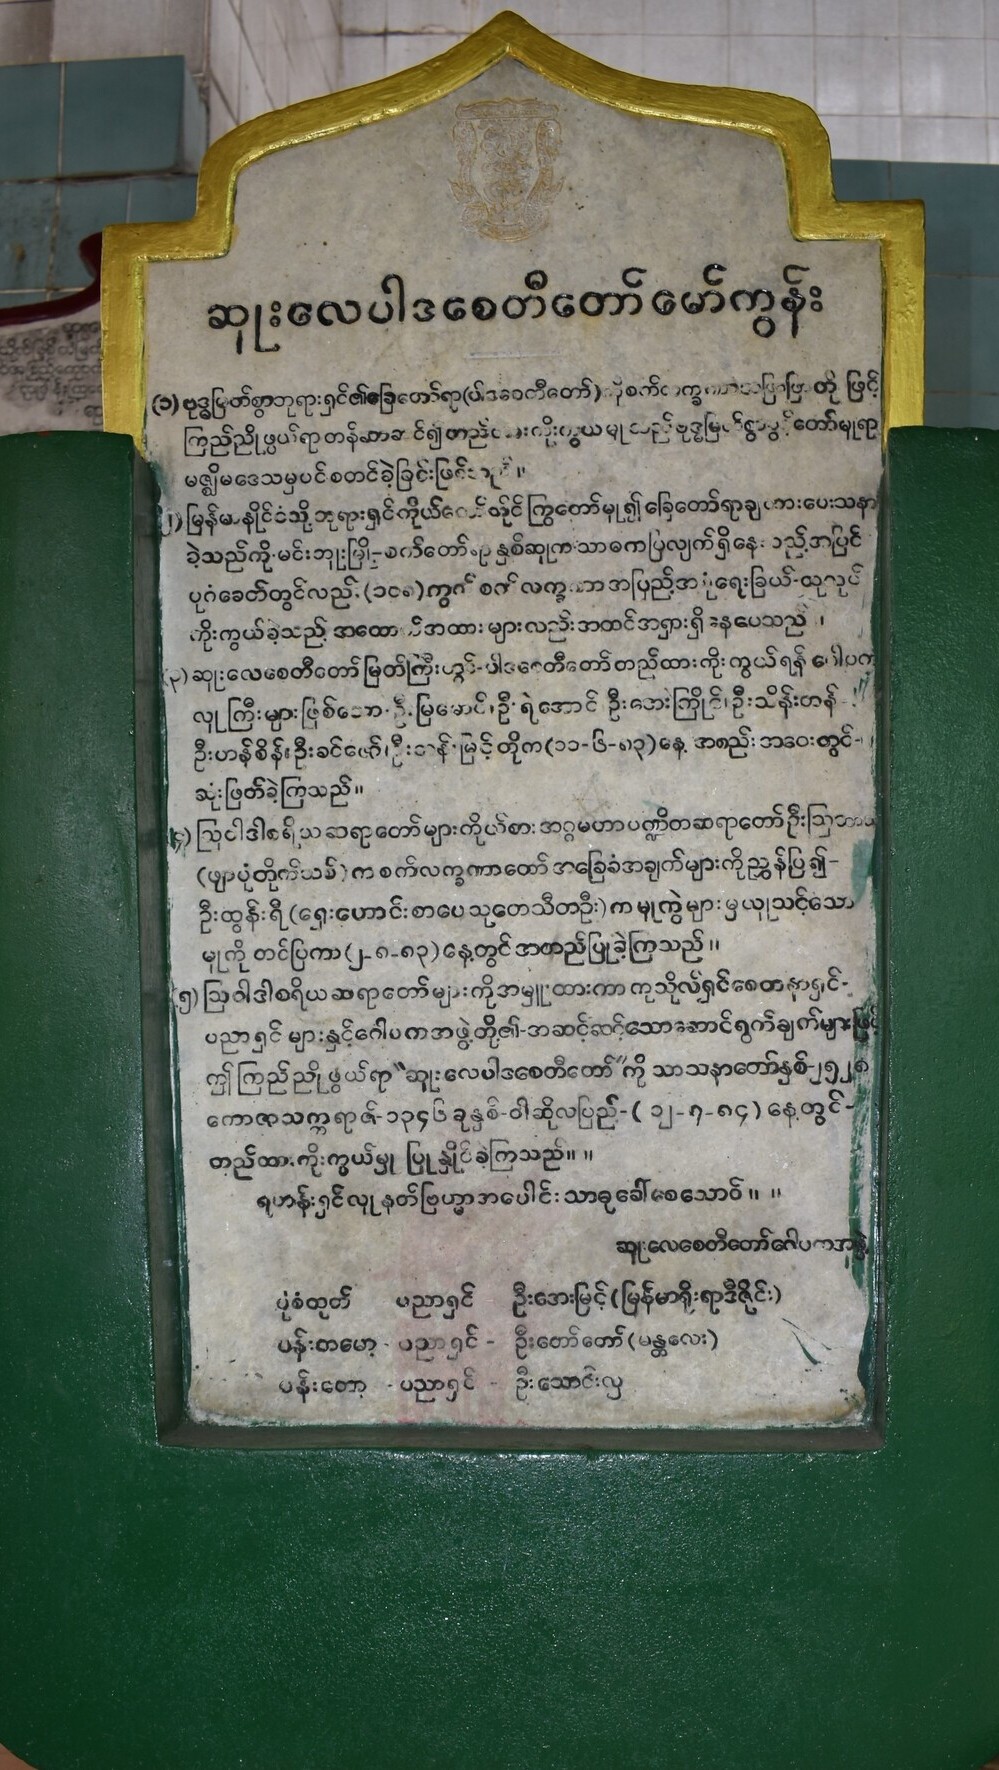 ဆူးလေပါဒစေတီတော်မော်ကွန်း
(၁) ဗုဒ္ဓမြတ်စွာဘုရားရှင်၏ခြေတော်ရာ(ပါဒစေတီတော်) တို့ ဖြင့်
ကြည်ညိုဖွယ်ရာတန်ဆာဆင်၍တည်ထားကိုးကွယ်မှုသည်ဗုဒ္ဓမြတ်စွာပွင့်တော်မူရာ
မဇ္ဈိမဒေသမှပင်စတင်ခဲ့ခြင်းဖြစ်သည်။
(၂) မြန်မာနိုင်ငံသို့ဘုရားရှင်ကိုယ်တော်တိုင်ကြွတော်မူ၍ခြေတော်ရာချထားပေးသနား
ခဲ့သည်ကို မင်းဘူးမြို့-စက်တော်ရာနှစ်ဆူကသာဓကပြလျက်ရှိနေသည့်အပြင်
ပုဂံခေတ်တွင်လည်း(၁၀၈)ကွက် စက်လက္ခဏာအပြည့်အစုံရေးခြယ်-ထုလုပ်
ကိုးကွယ်ခဲ့သည့် အထောက်အထားများလည်းအထင်အရှားရှိနေပေသည်။
(၃) ဆူးလေစေတီတော်မြတ်ကြီး၌ပါဒစေတီတော်တည်ထားကိုးကွယ်ရန် ဂေါပက
လူကြီးများဖြစ်သော ဦးမြမောင်၊ဦးရဲအောင်၊ဦးအေးကြိုင်၊ဦးသိန်းတန်
ဦးဟန်စိန်၊ဦးခင်ဇော်၊ဦးသန်းမြင့်တို့က(၁၁-၆-၈၃)နေ့ အစည်းအဝေးတွင်-
ဆုံးဖြတ်ခဲ့ကြသည်။
(၄) သြဝါဒါစရိယဆရာတော်များကိုယ်စား အဂ္ဂမဟာပဏ္ဍိတဆရာတော်ဦးသြဘာသ
(ဖျာပုံတိုက်သစ်)က စက်လက္ခဏာတော်အခြေခံအချက်များကိုညွှန်ပြ၍-
ဦးထွန်းရီ(ရှေးဟောင်းစာပေသုတေသီတဦး)က မူကွဲများမှယူသင့်သော
မူကို တင်ပြကာ(၂-၈-၈၃)နေ့တွင်အတည်ပြုခဲ့ကြသည်။
(၅) သြဝါဒါစရိယဆရာတော်များကိုအမှူးထားကာ ကုသိုလ်ရှင်စေတနာရှင်-
ပညာရှင်များနှင့်ဂေါပကအဖွဲ့တို့၏-အဆင့်ဆင့်သောဆောင်ရွက်ချက်များဖြင့်
ဤကြည်ညိုဖွယ်ရာ"ဆူးလေပါဒစေတီတော်"ကို သာသနာတော်နှစ်-၂၅၂၈
ကောဇာသက္ကရာဇ်-၁၃၄၆ ခုနှစ်-ဝါဆိုလပြည့်-(၁၂-၇-၈၄)နေ့တွင်-
တည်ထားကိုးကွယ်မှု ပြုနိုင်ခဲ့ကြသည်။ ။
ရဟန်းရှင်လူနတ်ဗြဟ္မာအပေါင်းသာဓုခေါ်စေသောဝ်။ ။
ဆူးလေစေတီတော်ဂေါပကအဖွဲ့
ပုံစံထုတ် ပညာရှင် ဦးအေးမြင့်(မြန်မာရိုးရာဒီဇိုင်း)
ပန်းတမော့ - ပညာရှင် - ဦးတော်တော်(မန္တလေး)
ပန်းတော့ - ပညာရှင် - ဦးသောင်းလှ